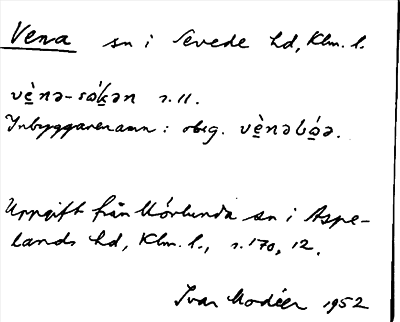 Vena sn i Sevede hd, Klm. l.
vè̱nə-sɷ́kən s. 11.
Inbyggarenamn: obeg. vè̱nəbɷ́ə.
Uppgift från Mörlunda sn i Aspe-
lands hd, Klm. l., s. 170, 12.
Ivar Modéer 1952